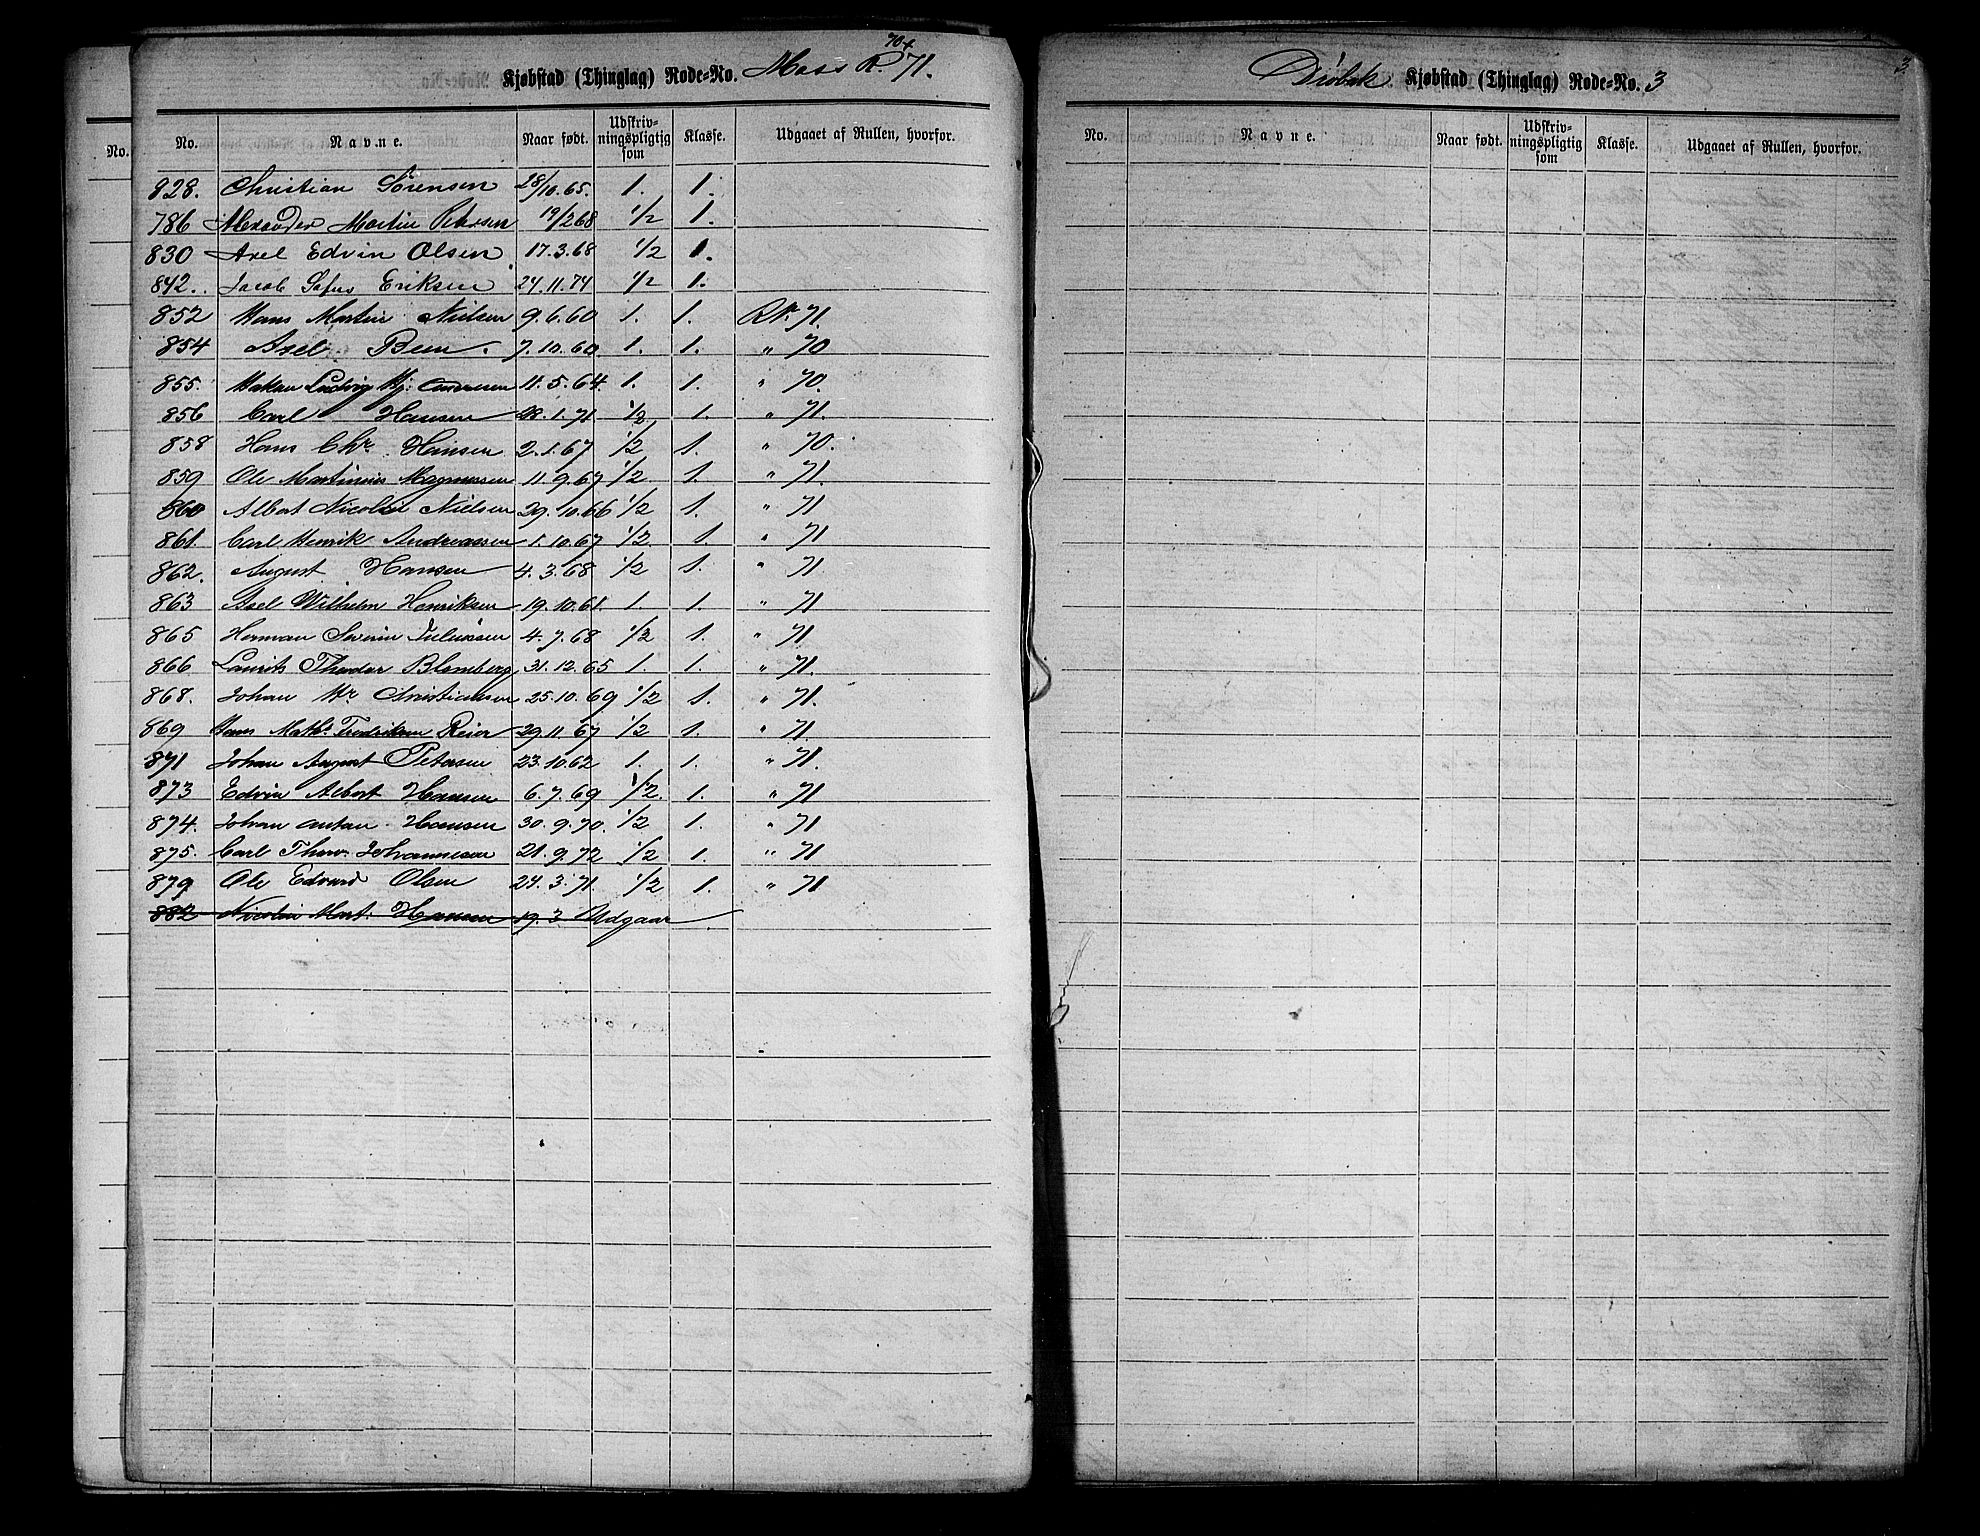 70 &
Kjøbstad (Thinglag) Rode=No. Moss R. 71.
No.
No. Navne. Naar født. Udskriv-ningspligtig som Klasse. Udgaaet af Rullen, hvorfor.
828. Christian Sørensen 28/10.65. 1. 1.
786 Alexander Martin Petersen 19/2 68 1/2 1.
830 Axel Edvin Olsen 17.3.68 1/2 1.
842. Jacob Sofus Eriksen 24.11.74 1/2 1.
852 Hans Martin Nielsen 9.6.60 1. 1. R.N. 71.
854 Axel Bein. 7.10.60 1. 1. " 70
855. Hakan Ludvig Hj: 11.5.64. 1. 1. " 70.
856 Carl Hansen 28.1.71. 1/2 1. " 71.
858 Hans Chr. Hansen 2.1.67 1/2 1. " 70.
859 Ole Martinius Magnussen 11.9.67 1/2 1. " 71.
860 Albert Nicolai Nielsen 29.10.66 1/2 1. " 71
861. Carl Henrik Andreassen 1.10.67 1/2 1. " 71
862. August Hansen 4.3.68 1/2 1. " 71
863 Axel Wilhelm Henriksen 19.10.61. 1. 1. " 71
865 Herman Severin Juliussen 4.7.68 1/2 1. " 71
866 Laurits Theodor Blomberg 31.12.65 1. 1. " 71.
868. Johan Hr. Christiansen 25.10.69 1/2 1. " 71.
869 Hans Math: Fredriksen Reier 29.11.67 1/2 1. " 71.
871 Johan August Petersen 23.10.62 1. 1. " 71.
873 Edvin Albert Hansen 6.7.69 1/2. 1. " 71
874. Johan Anton Hansen 30.9.70. 1/2 1. " 71
875. Carl Thorv. Johannesen 21.9.72 1/2 1. " 71
879 Ole Edvard Olsen 24.3.71. 1/2 1. " 71
882 Nicolai Mart: Hansen 19.3 Udgaar
3
Drøbak Kjøbstad (Thinglag) Rode=No. 3
No. Navne. Naar født. Udskriv-ningspligtig som Klasse. Udgaaet af Rullen, hvorfor.